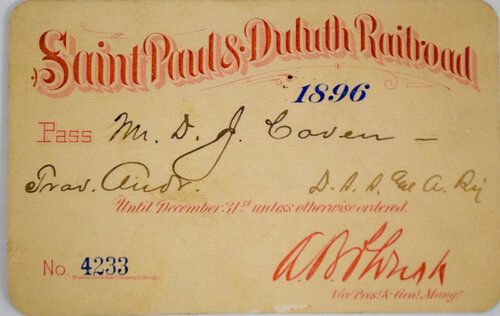 Saint Paul & Duluth Railroad
1896
Pass Mr. D. J. Coven —
Trav. Audr. D. S. S. & A. Ry
Until December 31st unless otherwise ordered.
No. 4233
Vice Prest. & Genl. Mang'r